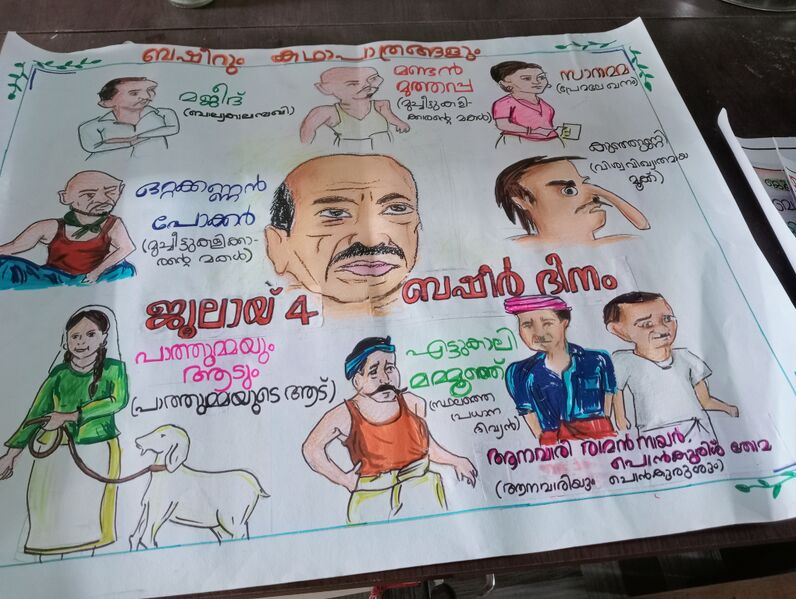 ബഷീറും കഥാപാത്രങ്ങളും
മജീദ്
(ബാല്യകാലസഖി)
മണ്ടൻ
മുത്തപ്പ
(മുച്ചീട്ടുകളി-
ക്കാരന്റെ മകൾ)
സാറാമ്മ
(പ്രേമലേഖനം)
ഒറ്റക്കണ്ണൻ
പോക്കർ
(മുച്ചീട്ടുകളിക്കാ-
രന്റെ മകൾ)
(വിശ്വവിഖ്യാതമായ
മൂക്ക്)
ജൂലായ് 4
ബഷീർ ദിനം
പാത്തുമ്മയും
ആടും
(പാത്തുമ്മയുടെ ആട്)
എട്ടുകാലി
മമ്മൂഞ്ഞ്
(സ്ഥലത്തെ
പ്രധാന
ദിവ്യൻ)
ആനവാരി രാമൻ നായർ.
പൊൻകുരിശ് തോമ
(ആനവാരിയും പൊൻകുരുശും)